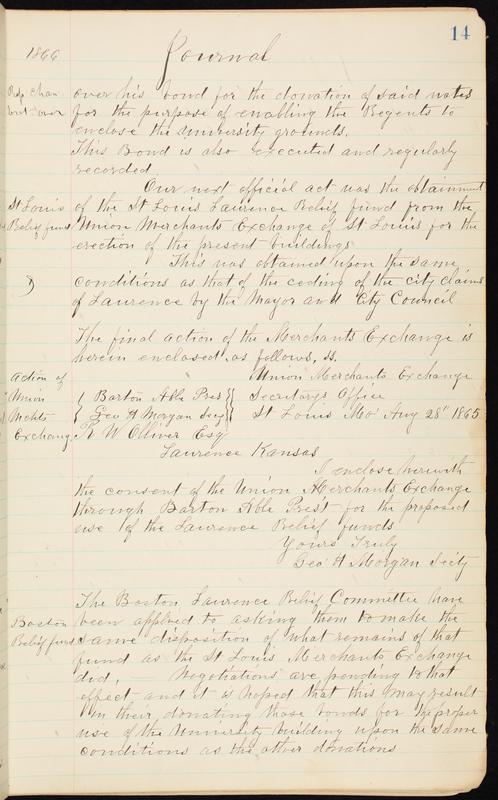 14
1866 Journal
over his bond for the donation of said notes
for the purpose of enabling the Regents to
enclose the University grounds.
This Bond is also executed and regularly
recorded
Our next official act was the obtainment
St Louis of the St Louis Laurence Relief fund from the
Relief fund Union Merchants Exchange of St Louis for the
erection of the present buildings
This was obtained upon the same
conditions as that of the ceding of the city claims
of Laurence by the Mayor and City Council
The final action of the Merchants Exchange is
herein enclosed, as follows, ss.
Action of Union Merchants Exchange
Union { Barton Able Pres }{ Secretarys Office
Mchts { Geo H Morgan Secy }{ St Louis Mo Aug 28" 1865
Exchang R W Olliver Esq
Laurence Kansas
I enclose herewith
the consent of the Union Merchants Exchange
through Barton Able Prest for the proposed
use of the Laurence Relief funds
Yours Truly
Geo H Morgan Secty
The Boston Laurence Relief Committee have
Boston been applied to asking them to make the
Relief fund same disposition of what remains of that
fund as the St Louis Merchants Exchange
did, Negotiations are pending to that
effect and it is hoped that this may result
in their donating those bonds for the proper
use of the University building upon the same
conditions as the other donations